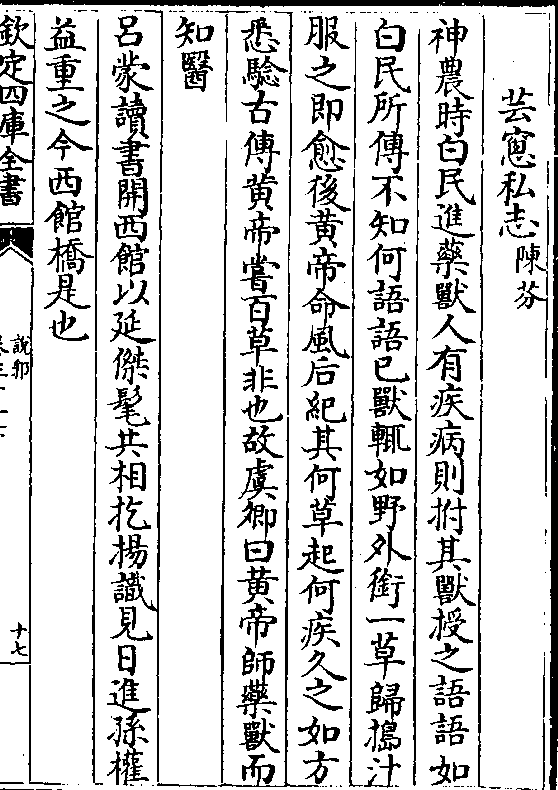 芸窻私志陳芬
神農時白民進藥獸人有疾病則拊其獸授之語語如
白民所傳不知何語語已獸輒如野外銜一草歸搗汁
服之即愈後黄帝命風后紀其何草起何疾久之如方
悉驗古傳黄帝嘗百草非也故虞卿曰黄帝師藥獸而
知醫
呂蒙讀書開西館以延傑髦共相扢揚識見日進孫權
益重之今西館橋是也
欽定四庫全書
說郛
十七